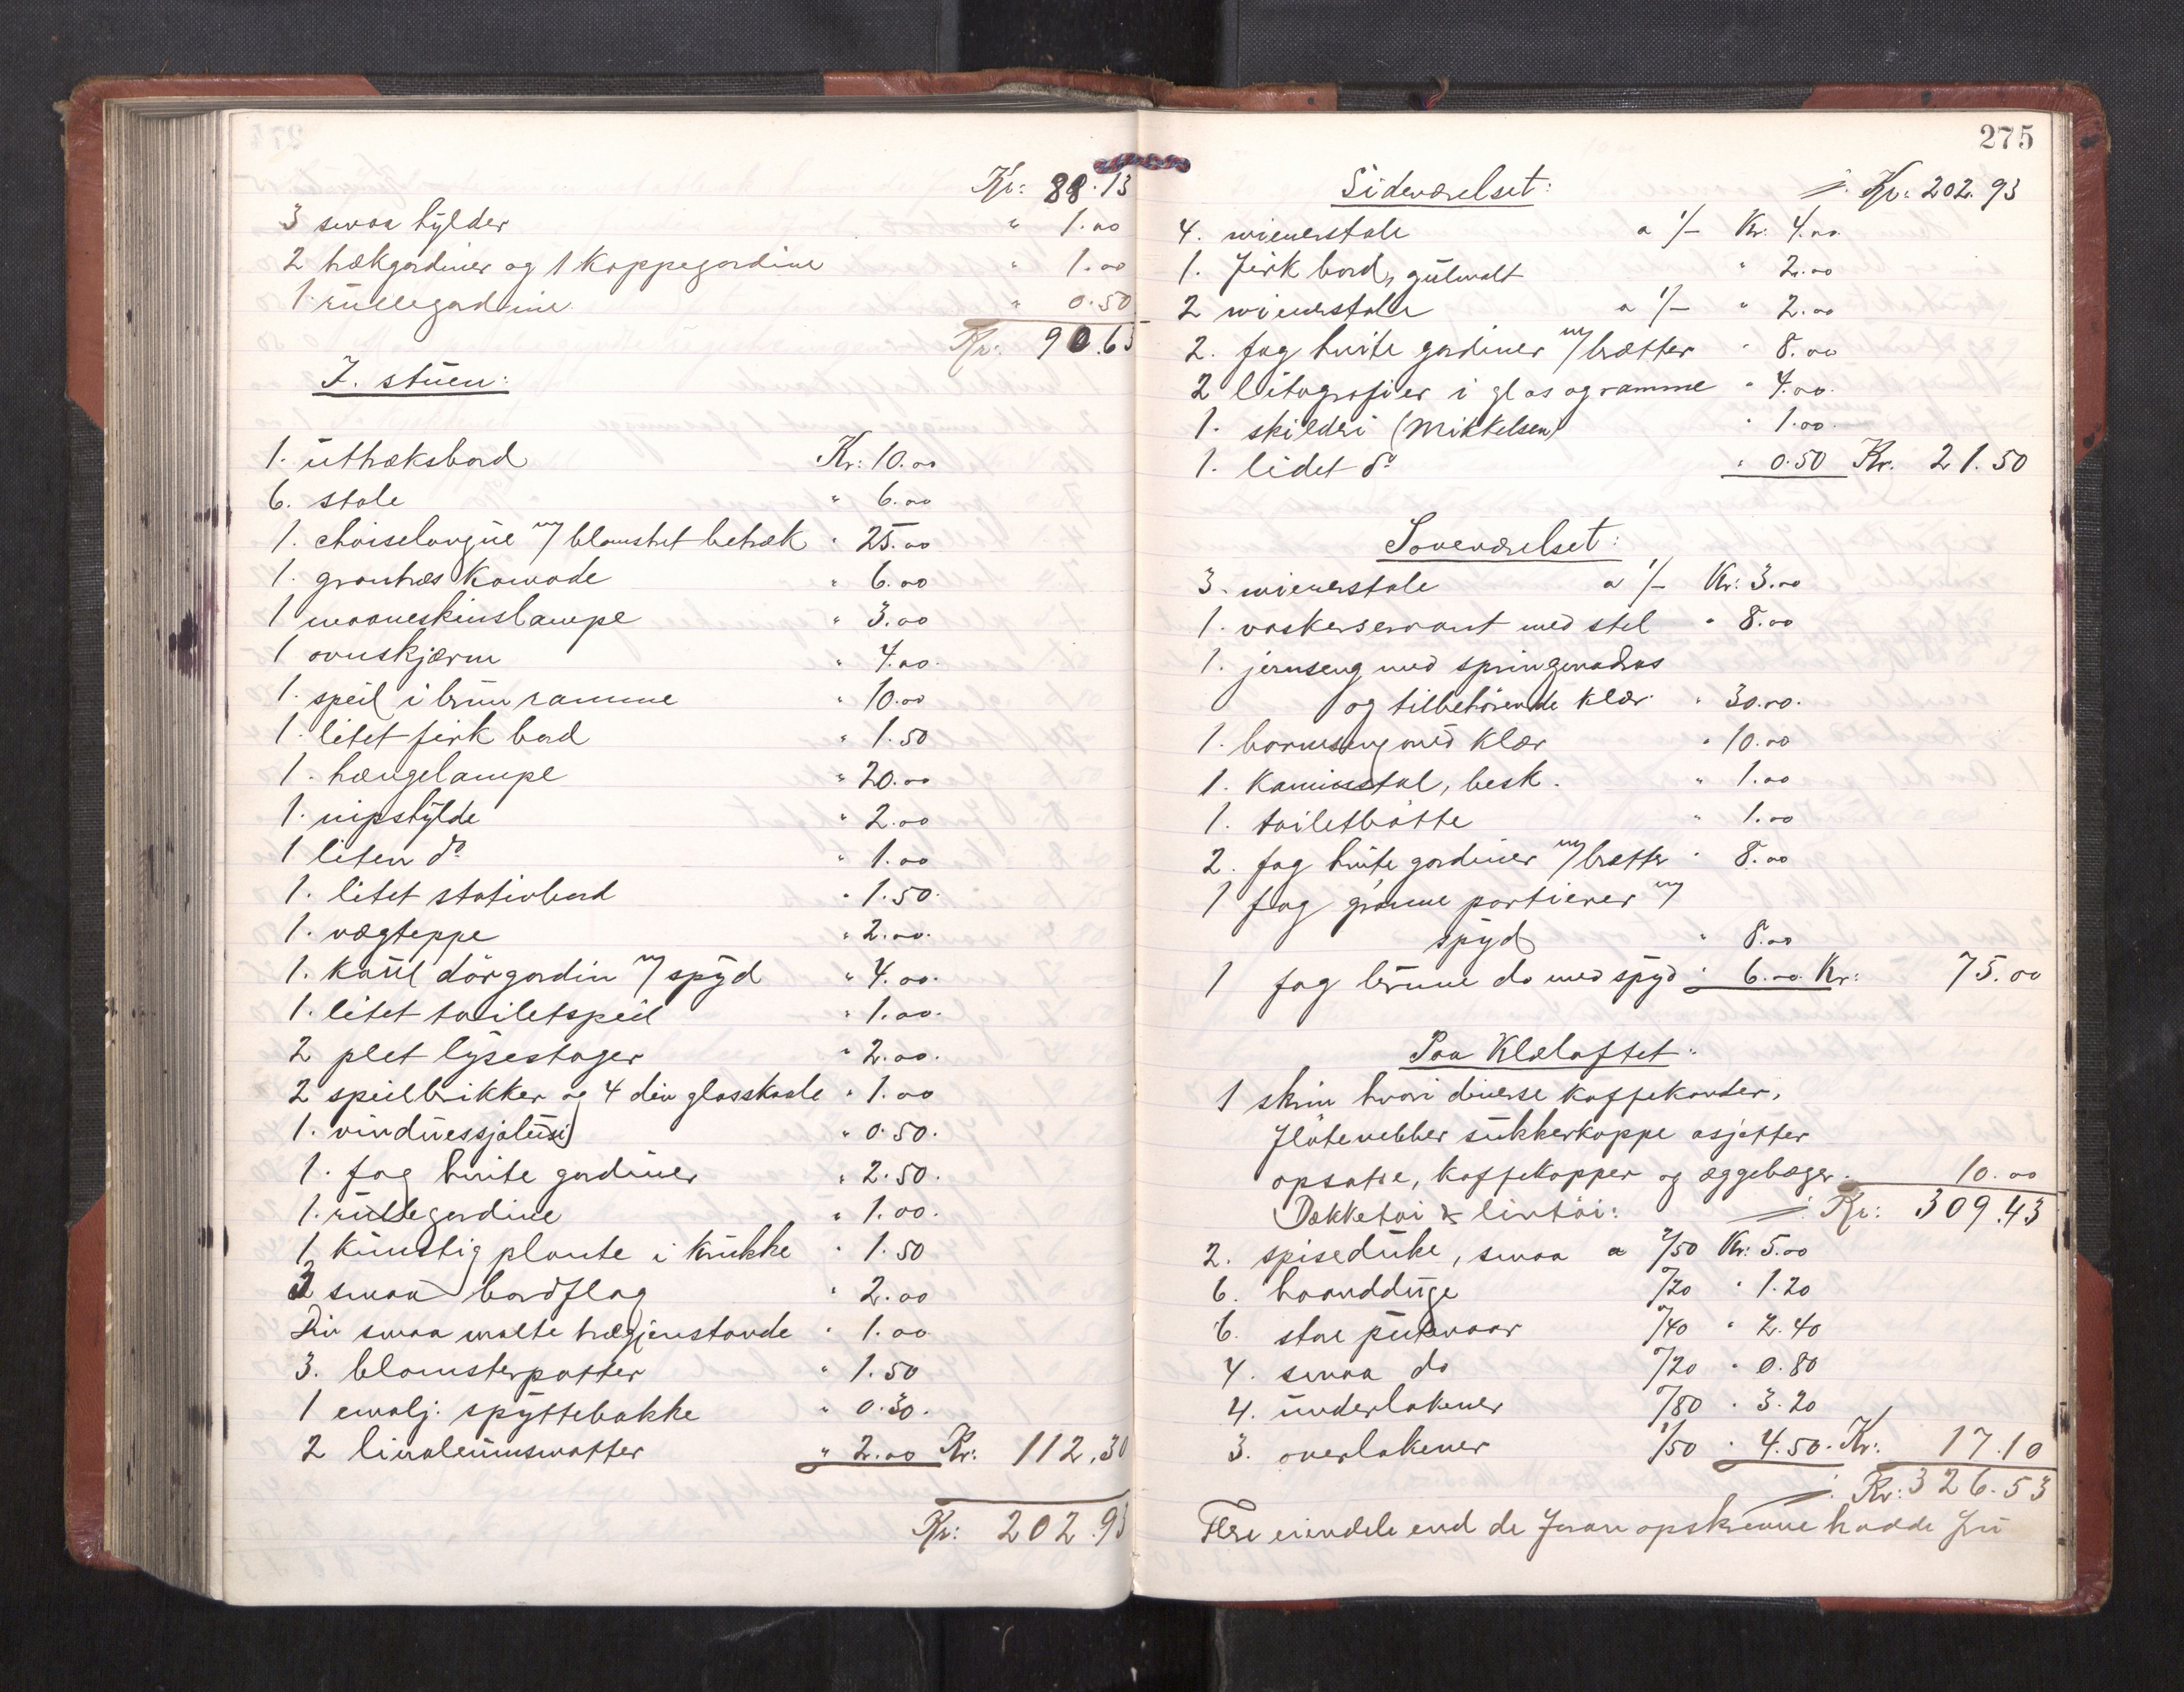 Kr: 88.13
3 smaa hylder " 1.00
2 trækgardiner og 1 Kappegardine " 1.00
1 rullegardine " 0.50
Kr: 90.63
I. stuen:
1. uttræksbord Kr: 10.00
6. stole " 6.00
1. chaiselongue m/ blomstret betræk " 25.00
1. grantræs Komode " 6.00
1 maaneskinslampe " 3.00
1 ovnskjærm " 4.00.
1. speil i brun ramme " 10.00
1. litet firk bord " 1.50
1. hængelampe " 20.00
1. nipshylde " 2.00
1 liten do " 1.00
1. litet stativbord " 1.50.
1. vægteppe " 2.00.
1. Kaut dørgardin m/ spyd " 4.00.
1. litet toiletspeil " 1.00.
2 plet lysestager " 2.00.
2 speilbrikker og 4 div glasskaale " 1.00
1. vinduessjalusi " 0.50.
1. fag hvite gardiner " 2.50.
1. rullegardine " 1.00.
1 kunstig plante i krukke " 1.50
2 smaa bordflag " 2.00
Div smaa malte trægjenstande " 1.00
3. blomsterpotter " 1.50
1 emalj. spyttebakke " 0.30.
2 linoleumsmatter " 2.00 Kr: 112.30
Kr: 202.93
275
Sideværelset: Kr: 202.93
4. wienerstole a 1/- Kr: 4.00
1. firk bord, gulmalt " 2.00
2 wienerstole a 1/- " 2.00
2. fag hvite gardiner m/ brætter " 8.00
2 litografier i glas og ramme " 4.00.
1. skilderi (Mikkelsen) " 1.00
1. lidet do " 0.50 Kr. 21.50
Soveværelset:
3. wienerstole a 1/- Kr: 3.00
1. vaskerservant med stel " 8.00
1. jernseng med springmadras
og tilbehørende klær " 30.00.
1. barneseng med klær " 10.00
1. Kaminstol, besk. " 1.00
1. toiletbøtte " 1.00
2. fag hvite gardiner m/ brætter " 8.00
1 fag grønne portierer m/
spyd " 8.00
1 fag brune do med spyd " 6.00 Kr: 75.00
Paa Klæloftet:
1 skrin hvori diverse kaffekander,
fløtenebber sukkerkoppe asjetter
opsatse, kaffekopper og æggebæger. 10.00
Dækketøi & lintøi: Kr: 309.43
2. spiseduke, smaa a 2/50 Kr: 5.00
6. haandduge "/20 " 1.20
6. store putevaar "/40 " 2.40
4. smaa do "/20 " 0.80
4. underlakener "/80 " 3.20
3. overlakener 1/50 " 4.50. Kr: 17.10
Kr: 326.53
Flere eiendele end de foran opskrevne hadde fru